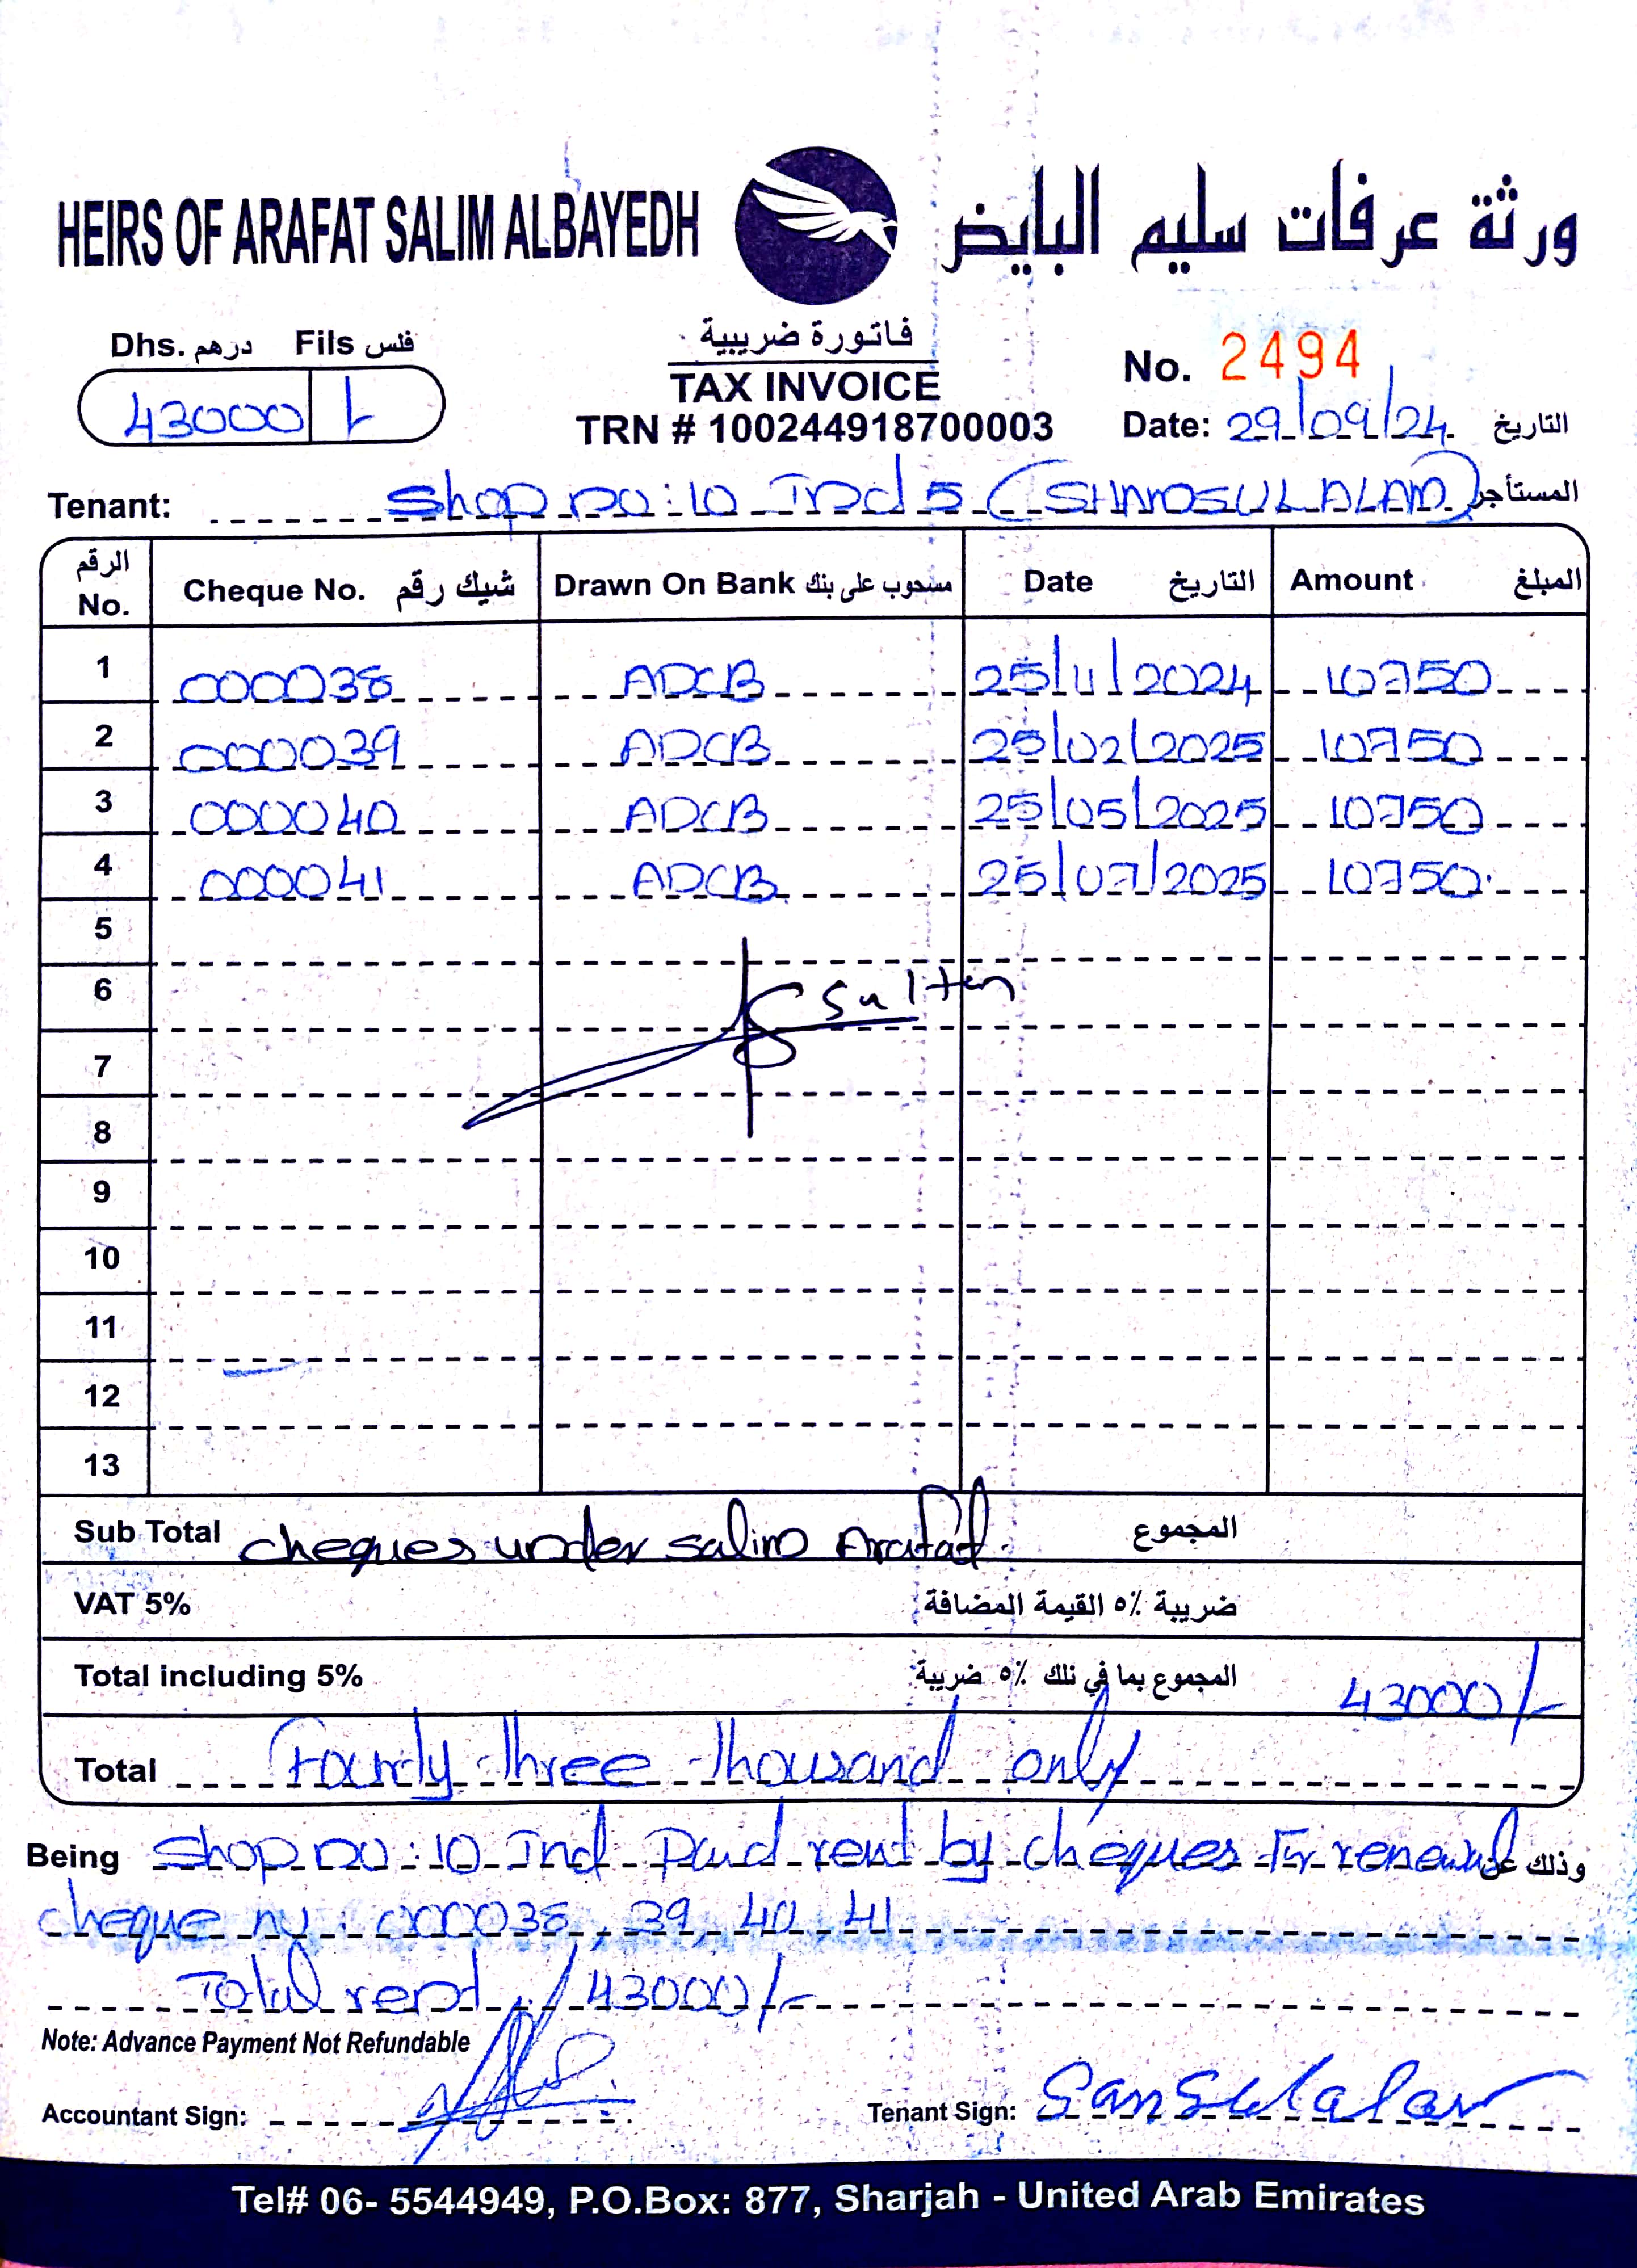 HEIRS OF ARAFAT SALIM ALBAYEDH ورثة عرفات سليم البايض
Dhs. درهم Fils فلس
43000 /-
فاتورة ضريبية
TAX INVOICE
TRN # 100244918700003
No. 2494
Date: 29/09/24 التاريخ
Tenant: Shop no:10 Ind 5 (SHAMSUL ALAM) المستأجر
الرقم No. Cheque No. شيك رقم Drawn On Bank مسحوب على بنك Date التاريخ Amount المبلغ
1 000038 ADCB 25/11/2024 10750
2 000039 ADCB 25/02/2025 10750
3 000040 ADCB 25/05/2025 10750
4 000041 ADCB 25/07/2025 10750
5
6 Sultan
7
8
9
10
11
12
13
Sub Total cheques under salim Arafat. المجموع
VAT 5% ضريبة ٥٪ القيمة المضافة
Total including 5% المجموع بما في ذلك ٥٪ ضريبة 43000/-
Total Fourdy three thousand only
Being Shop no:10 Ind Paid rent by cheques for renewal وذلك عن
cheque no: 000038, 39, 40, 41
Total rent / 43000/-
Note: Advance Payment Not Refundable
Accountant Sign: Tenant Sign: Sansulalam
Tel# 06- 5544949, P.O.Box: 877, Sharjah - United Arab Emirates